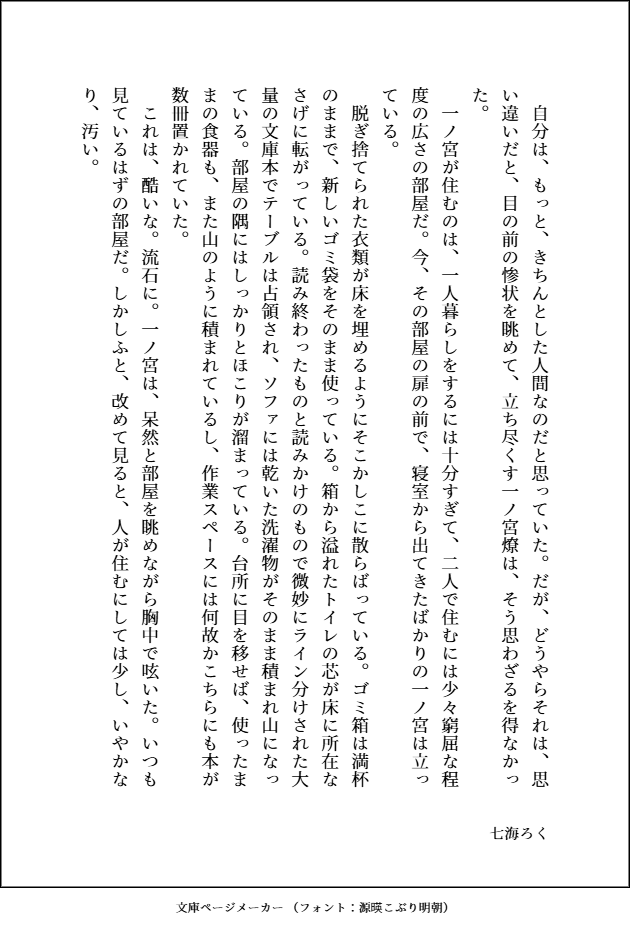 自分は、もっと、きちんとした人間なのだと思っていた。だが、どうやらそれは、思
い違いだと、目の前の惨状を眺めて、立ち尽くす一ノ宮燎は、そう思わざるを得なかっ
た。
　一ノ宮が住むのは、一人暮らしをするには十分すぎて、二人で住むには少々窮屈な程
度の広さの部屋だ。今、その部屋の扉の前で、寝室から出てきたばかりの一ノ宮は立っ
ている。
　脱ぎ捨てられた衣類が床を埋めるようにそこかしこに散らばっている。ゴミ箱は満杯
のままで、新しいゴミ袋をそのまま使っている。箱から溢れたトイレの芯が床に所在な
さげに転がっている。読み終わったものと読みかけのもので微妙にライン分けされた大
量の文庫本でテーブルは占領され、ソファには乾いた洗濯物がそのまま積まれ山になっ
ている。部屋の隅にはしっかりとほこりが溜まっている。台所に目を移せば、使ったま
まの食器も、また山のように積まれているし、作業スペースには何故かこちらにも本が
数冊置かれていた。
　これは、酷いな。流石に。一ノ宮は、呆然と部屋を眺めながら胸中で呟いた。いつも
見ているはずの部屋だ。しかしふと、改めて見ると、人が住むにしては少し、いやかな
り、汚い。
七海ろく
文庫ページメーカー（フォント：源暎こぶり明朝）